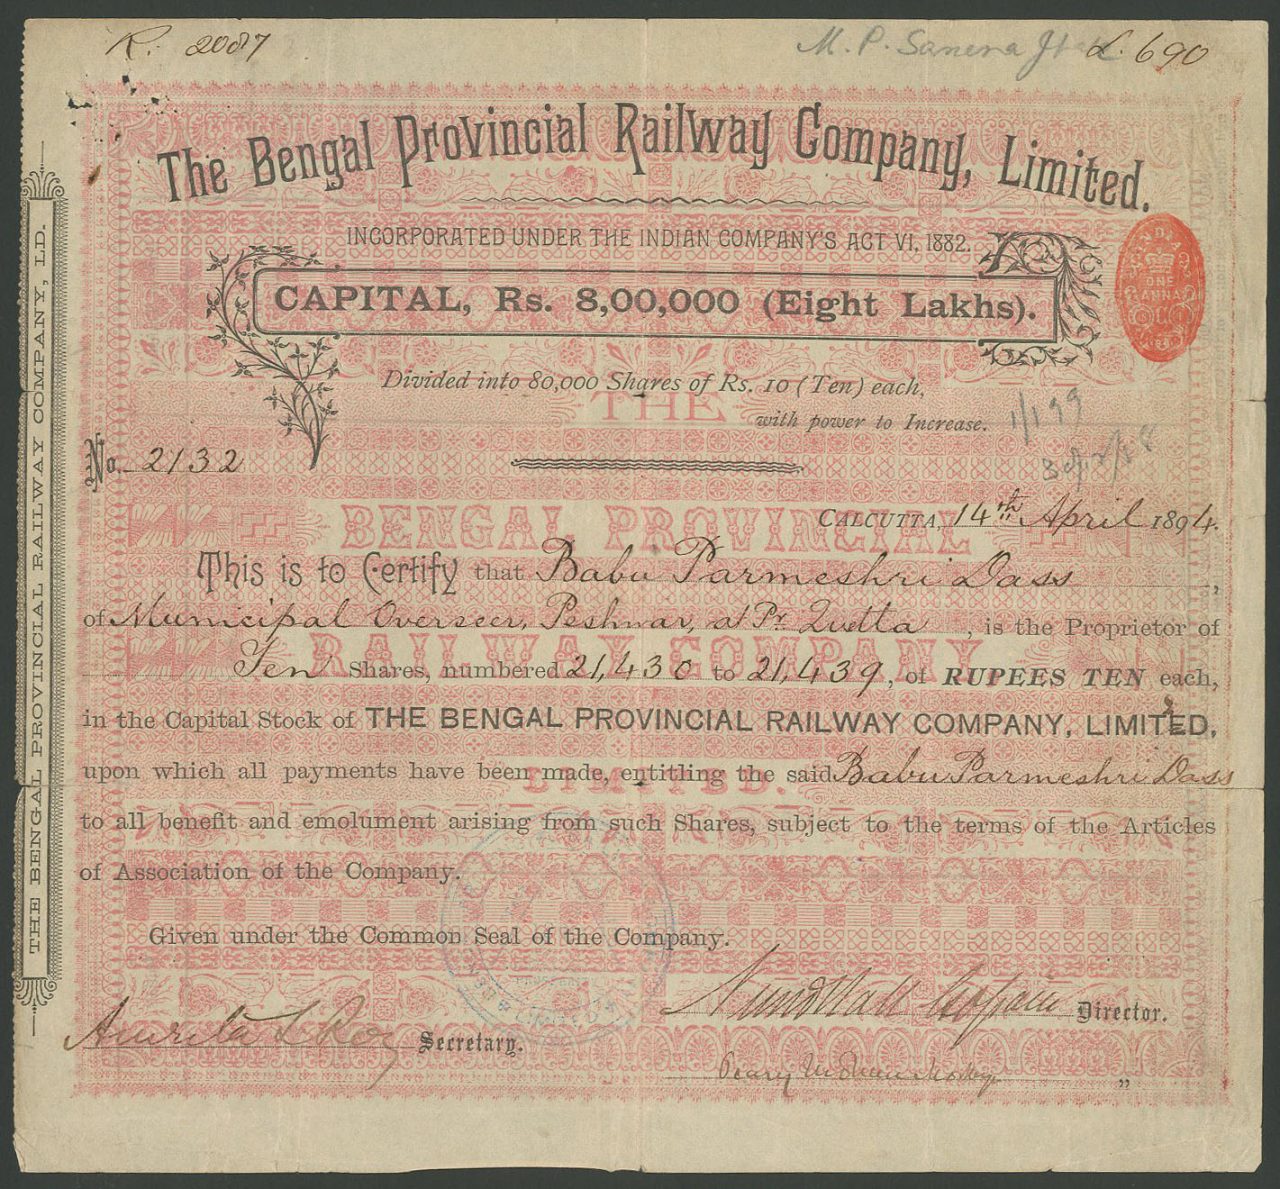 R. 2087
M. P. L. 690
The Bengal Provincial Railway Company, Limited.
INCORPORATED UNDER THE INDIAN COMPANY'S ACT VI, 1882.
CAPITAL, Rs. 8,00,000 (Eight Lakhs).
INDIA
ONE
ANNA
Divided into 80,000 Shares of Rs. 10 (Ten) each,
THE
with power to Increase.
1/1 99
No. 2132
CALCUTTA, 14th April 1894.
BENGAL PROVINCIAL
This is to Certify that Babu Parmeshri Dass ,,
of Municipal Overseer, Peshwar, at Pr. Quetta , is the Proprietor of
RAILWAY COMPANY
Ten Shares, numbered 21,430 to 21,439, of RUPEES TEN each,
in the Capital Stock of THE BENGAL PROVINCIAL RAILWAY COMPANY, LIMITED,
upon which all payments have been made, entitling the said Babu Parmeshri Dass
LIMITED.
to all benefit and emolument arising from such Shares, subject to the terms of the Articles
of Association of the Company.
Given under the Common Seal of the Company.
Director.
Amrita L Roy Secretary.
Peary Mohan ,,
THE BENGAL PROVINCIAL RAILWAY COMPANY, LD.